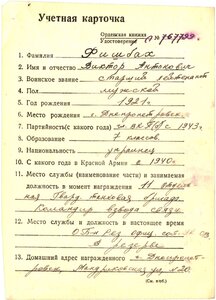 Учетная карточка
Орденская книжка
Удостоверение № 767799
1. Фамилия Фишбах
2. Имя и отчество Виктор Антонович
3. Воинское звание старший лейтенант
4. Пол мужской
5. Год рождения 1921 г.
6. Место рождения г. Днепропетровск
7. Партийность (с какого года) чл. ВКП(б) с 1943 г.
8. Образование 7 классов
9. Национальность украинец
10. С какого года в Красной Армии с 1940 г.
11. Место службы (наименование части) и занимаемая
должность в момент награждения 11 отдель
ная Гвард. танковая бригада
Командир взвода связи
12. Место службы и должность в настоящее время
в резерве
13. Домашний адрес награжденного г. Днепропет-
ровск,
(См. н/об.)